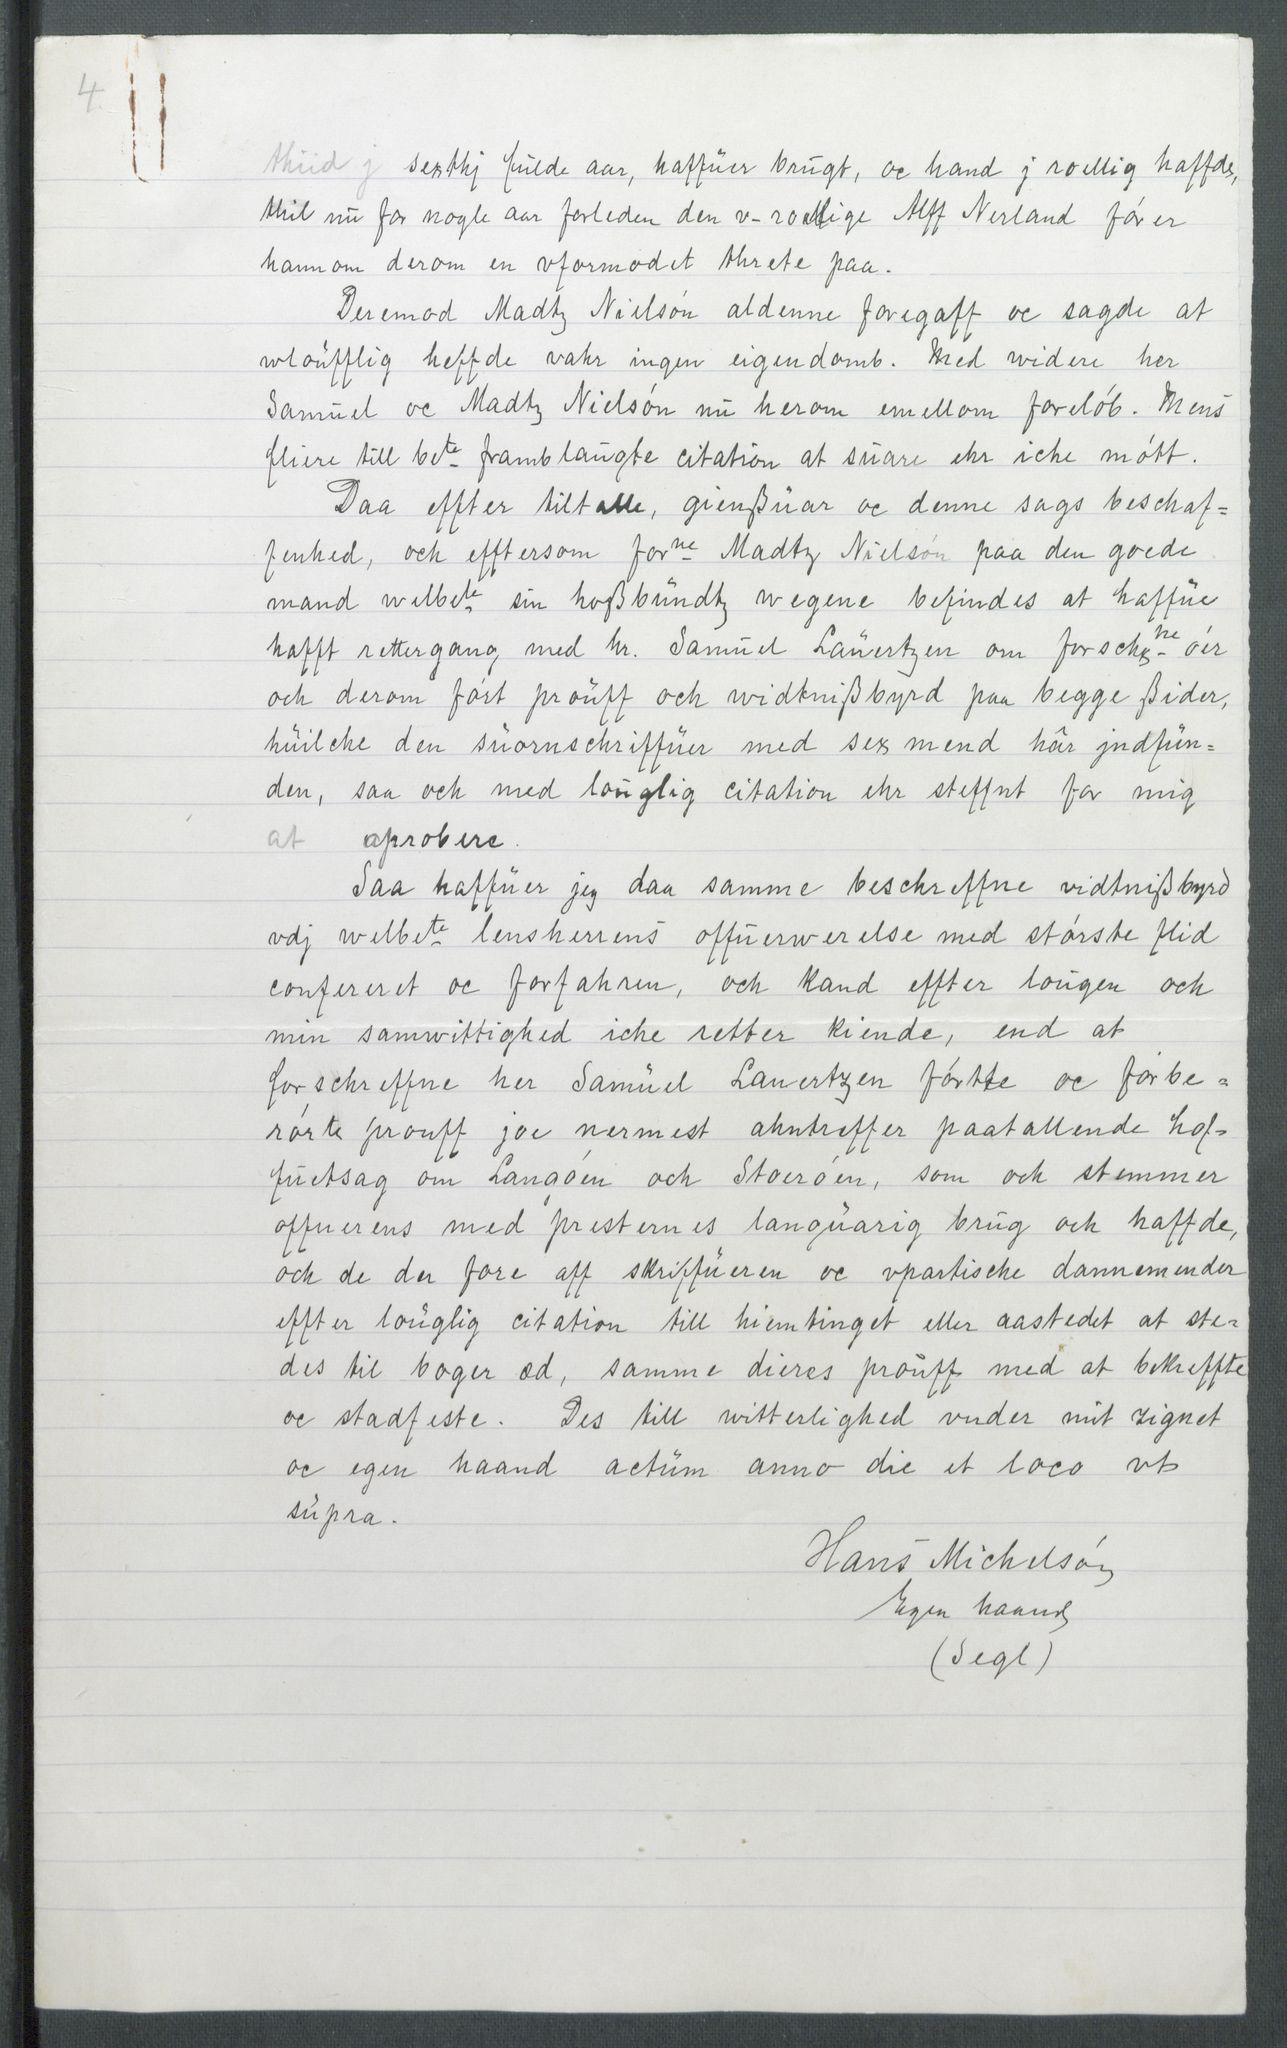 4.
thiid j sexthj fulde aar, haffüer brugt, oc hand j roellig haffde,
thil nu for nogle aar forleden den v-roellige Alff Nerland fór er
hannom derom en vformodet threte paa.
Deremod Madtz Nielsón aldenne foregaff oc sagde at
wloüfflig heffde vahr ingen eigendomb. Med widere her
Samüel oc Madtz Nielsón nu herom emellom forelób. Mens
fliere till bete framblaugte citation at suare ehr iche mótt.
Daa effter tiltalle, gienßüar oc denne sags beschaf=
fenhed, och efftersom forne Madtz Nielsón paa den goede
mand welbete sin hoßbündtz wegene befindes at haffüe
hafft rettergang med hr. Samüel Laüertzen om forschne óer
och derom fórt proüff och widtnißbyrd paa begge ßider,
hüilche den süornschriffüer med sex mend hâr jndfün=
den, saa och med louglig citation ehr steffnt for mig
at aprobere.
Saa haffüer jeg daa samme beschreffne vidtnißbyrd
vdj welbete lensherrens offüerwerelse med stórste flid
confereret oc forfahren, och kand effter lougen och
min samwittighed iche retter kiende, end at
forschreffne her Samüel Lauertzen fórtte oc fórbe=
rórte prouff joe nermest ahntreffer paatallende hof=
fuetsag om Langóen och Stoeróen, som och stemmer
offuerens med presternes langüarig brug och haffde,
och de der fore aff skriffüeren oc vpartische dannemender
effter loüglig citation till hiemtinget eller aastedet at ste=
des til boger ed, samme dieres proüff med at bekreffte
oc stadfeste. Des till witterlighed vnder mit zignet
oc egen haand actüm anno die et loco vt
süpra.
Hans Michelsón
Egen haand
(Segl)